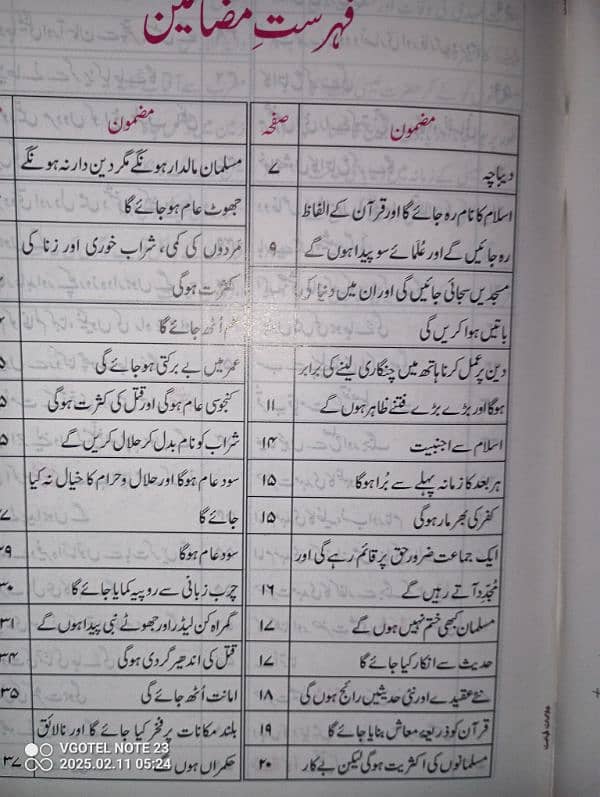 فہرستِ مضامین
مضمون صفحہ
دیباچہ ۷
اسلام کا نام رہ جائے گا اور قرآن کے الفاظ
رہ جائیں گے اور عُلمائے سو پیدا ہوں گے ۹
مسجدیں سجائی جائیں گی اور ان میں دنیا کی
باتیں ہوا کریں گی
دین پر عمل کرنا ہاتھ میں چنگاری لینے کی برابر
ہوگا اور بڑے بڑے فتنے ظاہر ہوں گے ۱۱
اسلام سے اجنبیت ۱۴
ہر بعد کا زمانہ پہلے سے بُرا ہوگا ۱۵
کفر کی بھرمار ہوگی ۱۵
ایک جماعت ضرور حق پر قائم رہے گی اور
مُجدِّد آتے رہیں گے ۱۶
مسلمان کبھی ختم نہیں ہوں گے ۱۷
حدیث سے انکار کیا جائے گا ۱۷
نئے عقیدے اور نئی حدیثیں رائج ہوں گی ۱۸
قرآن کو ذریعہ معاش بنایا جائے گا ۱۹
مسلمانوں کی اکثریت ہوگی لیکن بے کار ۲۰
مضمون
مسلمان مالدار ہونگے مگر دین دار نہ ہونگے
جھوٹ عام ہو جائے گا
مَردوں کی کمی، شراب خوری اور زنا کی
کثرت ہوگی
اُٹھ جائے گا
عمر میں بے برکتی ہو جائے گی
کنجوسی عام ہوگی اور قتل کی کثرت ہوگی
شراب کو نام بدل کر حلال کریں گے
سود عام ہوگا اور حلال و حرام کا خیال نہ کیا
جائے گا
سود عام ہوگا
چرب زبانی سے روپیہ کمایا جائے گا ۳۰
گمراہ کن لیڈر اور جھوٹے نبی پیدا ہوں گے ۳۱
قتل کی اندھیر گردی ہوگی ۳۴
امانت اُٹھ جائے گی ۳۵
بلند مکانات پر فخر کیا جائے گا اور نالائق
حکمراں ہوں گے ۳۷
VGOTEL NOTE 23
2025.02.11 05:24